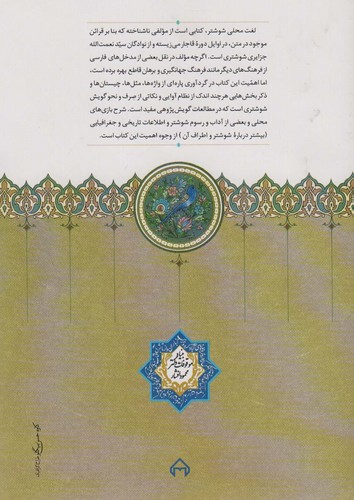 لغت محلی شوشتر، کتابی است از مؤلفی ناشناخته که بنا بر قرائن
موجود در متن، در اوایل دورهٔ قاجار می‌زیسته و از نوادگان سیّد نعمت‌الله
جزایری شوشتری است. اگرچه مؤلف در نقل بعضی از مدخل‌های فارسی
از فرهنگ‌های دیگر مانند فرهنگ جهانگیری و برهان قاطع بهره برده است،
اما اهمّیت این کتاب در گردآوری پاره‌ای از واژه‌ها، مثل‌ها، چیستان‌ها و
ذکر بخش‌هایی هرچند اندک از نظام آوایی و نکاتی از صرف و نحو گویش
شوشتری است که در مطالعات گویش‌پژوهی مفید است. شرح بازی‌های
محلی و بعضی از آداب و رسوم شوشتر و اطلاعات تاریخی و جغرافیایی
(بیشتر دربارهٔ شوشتر و اطراف آن) از وجوه اهمیت این کتاب است.
بنیاد
موقوفات دکتر
محمود افشار